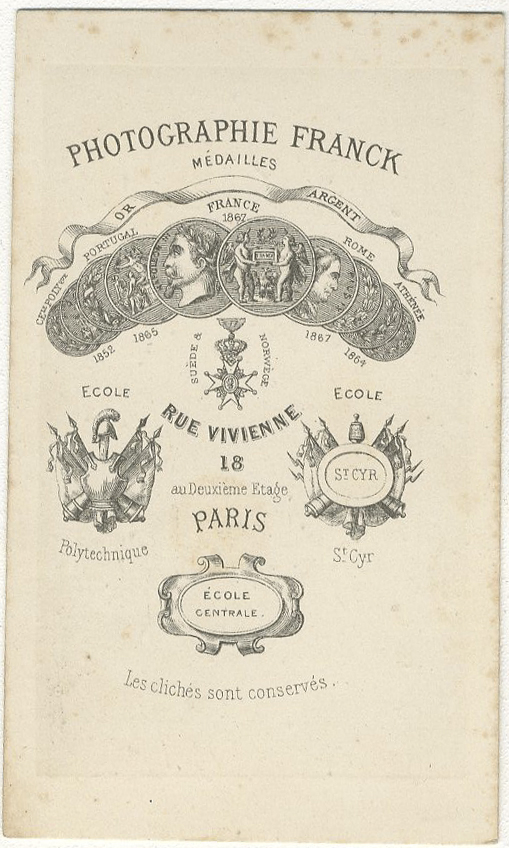 PHOTOGRAPHIE FRANCK
MÉDAILLES
OR
ARGENT
FRANCE
1867
PORTUGAL
ROME
ATHÉNÉE
1852
1865
1867
1864
SUÈDE &
NORWÈGE
ECOLE
ECOLE
RUE VIVIENNE
18
au Deuxième Etage
PARIS
ST CYR
Polytechnique
St Cyr
ÉCOLE
CENTRALE.
Les clichés sont conservés.